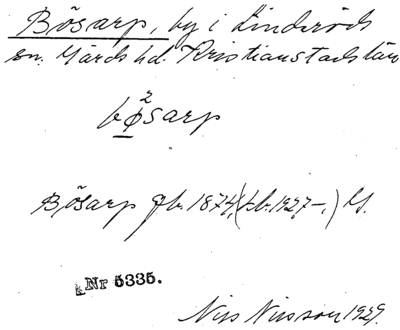 Bösarp, by i Linderöds
sn. Gärds hd. Kristianstads län
bø²sarp
Bösarp Jb. 1874, (Kb. 1927–,) G.
Nr 5335.
Nils Nilsson 1929.